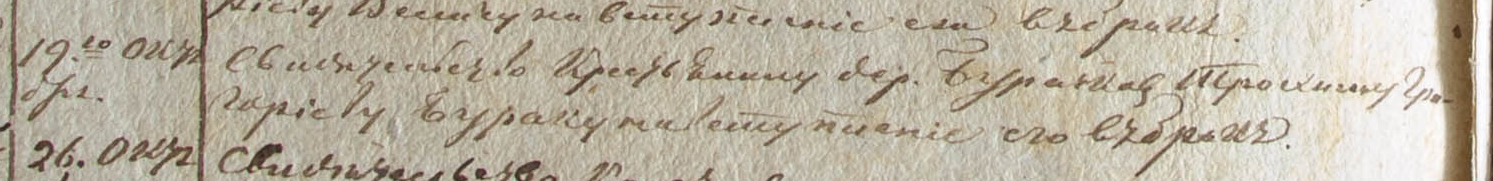 на вступление его въ бракъ.
19.го Октя Свидетельство Крестьянину дер. Бураковъ Трохиму Гри-
бря. горіеву Бураку на вступленіе его въ бракъ.
26. Октя Свидетельство